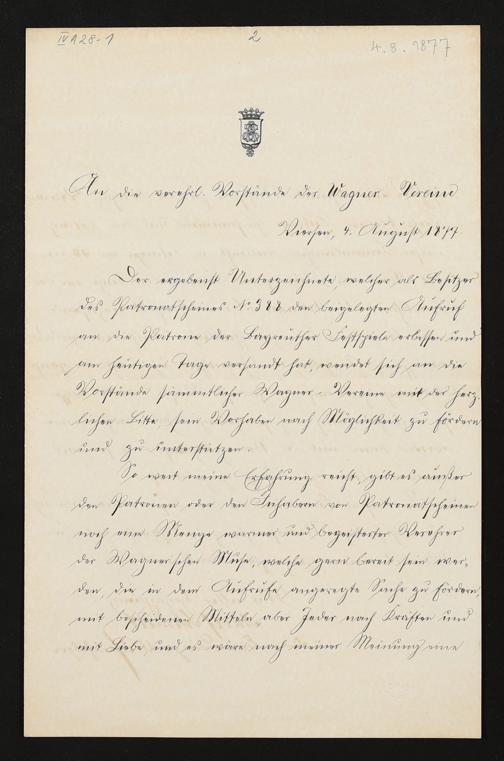 IV A 28-1
2
4.8.1877
An die verehrl. Vorstände der Wagner-Vereine
Viersen, 4. August 1877.
Der ergebenst Unterzeichnete, welcher als Besitzer
des Patronatscheines No 388 den beigelegten Aufruf
an die Patrone der Bayreuther Festspiele erlassen und
am heutigen Tage versandt hat, wendet sich an die
Vorstände sämmtlicher Wagner-Vereine mit der herz-
lichen Bitte sein Vorhaben nach Möglichkeit zu fördern
und zu unterstützen.
So weit meine Erfahrung reicht, gibt es außer
den Patronen oder den Inhabern von Patronatscheinen
noch eine Menge warmer und begeisterter Verehrer
der Wagner'schen Muse, welche gern bereit sein wer-
den, die in dem Aufrufe angeregte Sache zu fördern,
mit bescheidenen Mitteln aber Jeder nach Kräften und
mit Liebe und es wäre nach meiner Meinung eine